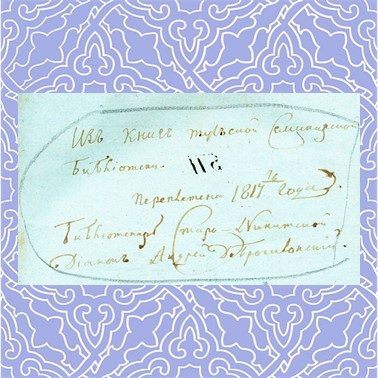 Изъ Книгъ тульской Семинарской
Библіотеки.
Переплетена 1817 года
Библіотекарь Старо-Никитской
Діаконъ Андрей